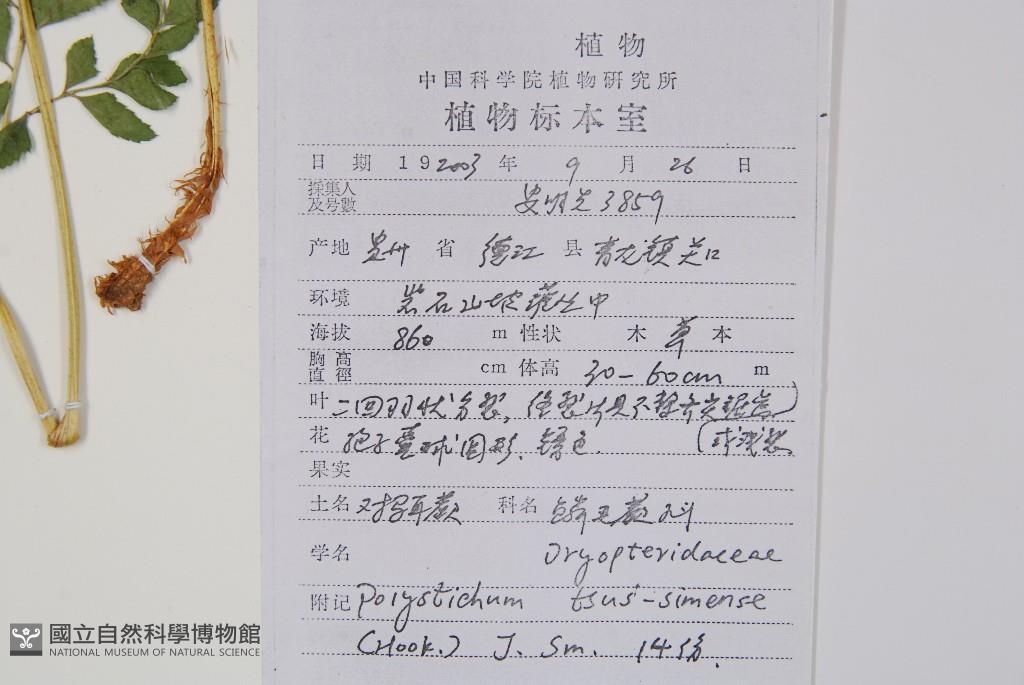 植物
中国科学院植物研究所
植物标本室
日期 19 2003 年 9 月 26 日
採集人
及号數 安明先 3859
产地 贵州 省 德江 县 青龙镇关口
环境 岩石山坡灌丛中
海拔 860 m 性状 木 草 本
胸高
直徑 cm 体高 30-60cm m
叶 二回羽状分裂,
花 孢子囊球圆形. 锈色. (或浅裂)
果实
土名 对马耳蕨 科名 鳞毛蕨科
学名 Dryopteridaceae
附记 Polystichum tsus-simense
(Hook.) J. Sm. 14份.
國立自然科學博物館
NATIONAL MUSEUM OF NATURAL SCIENCE